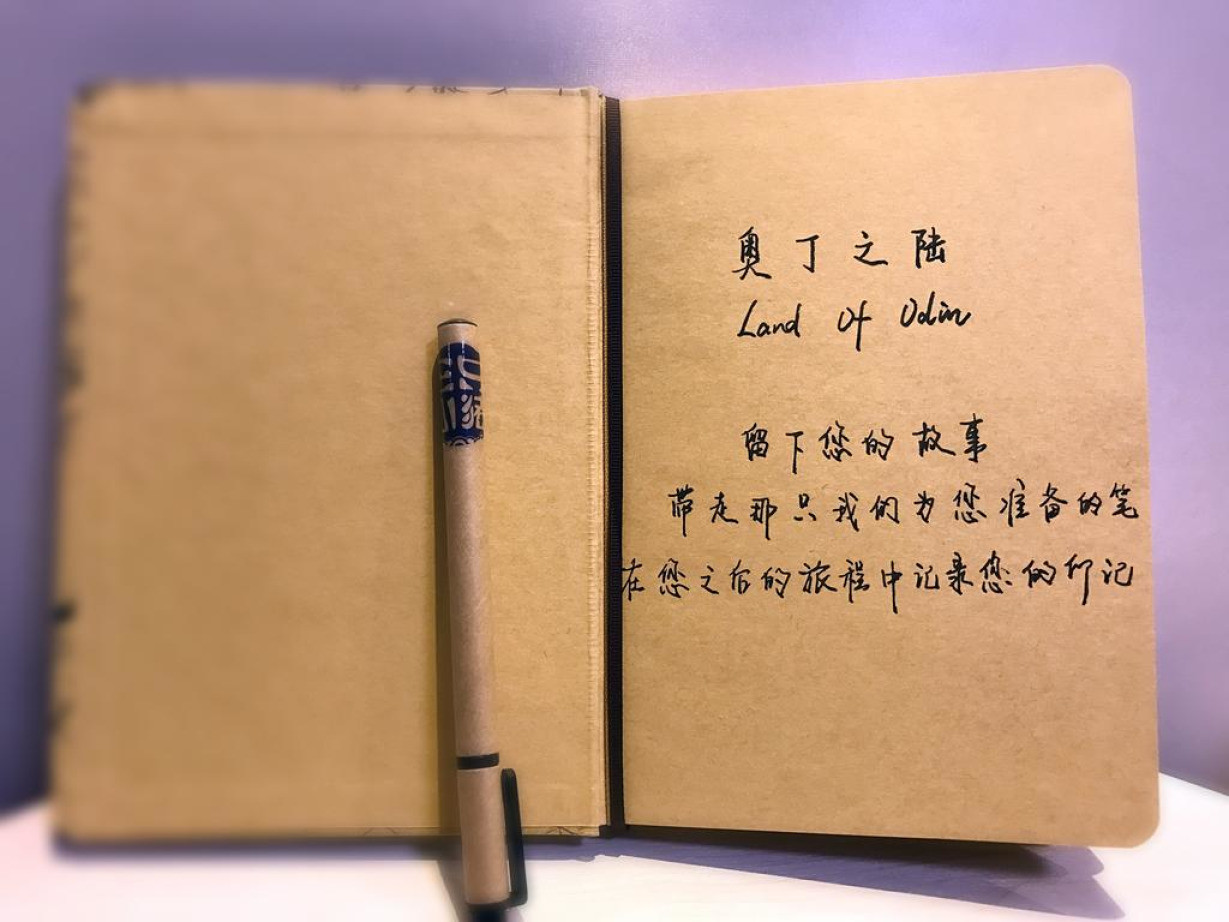 奥丁之陆
Land Of Odin
留下您的故事
带走那只我们为您准备的笔
在您之后的旅程中记录您的印记